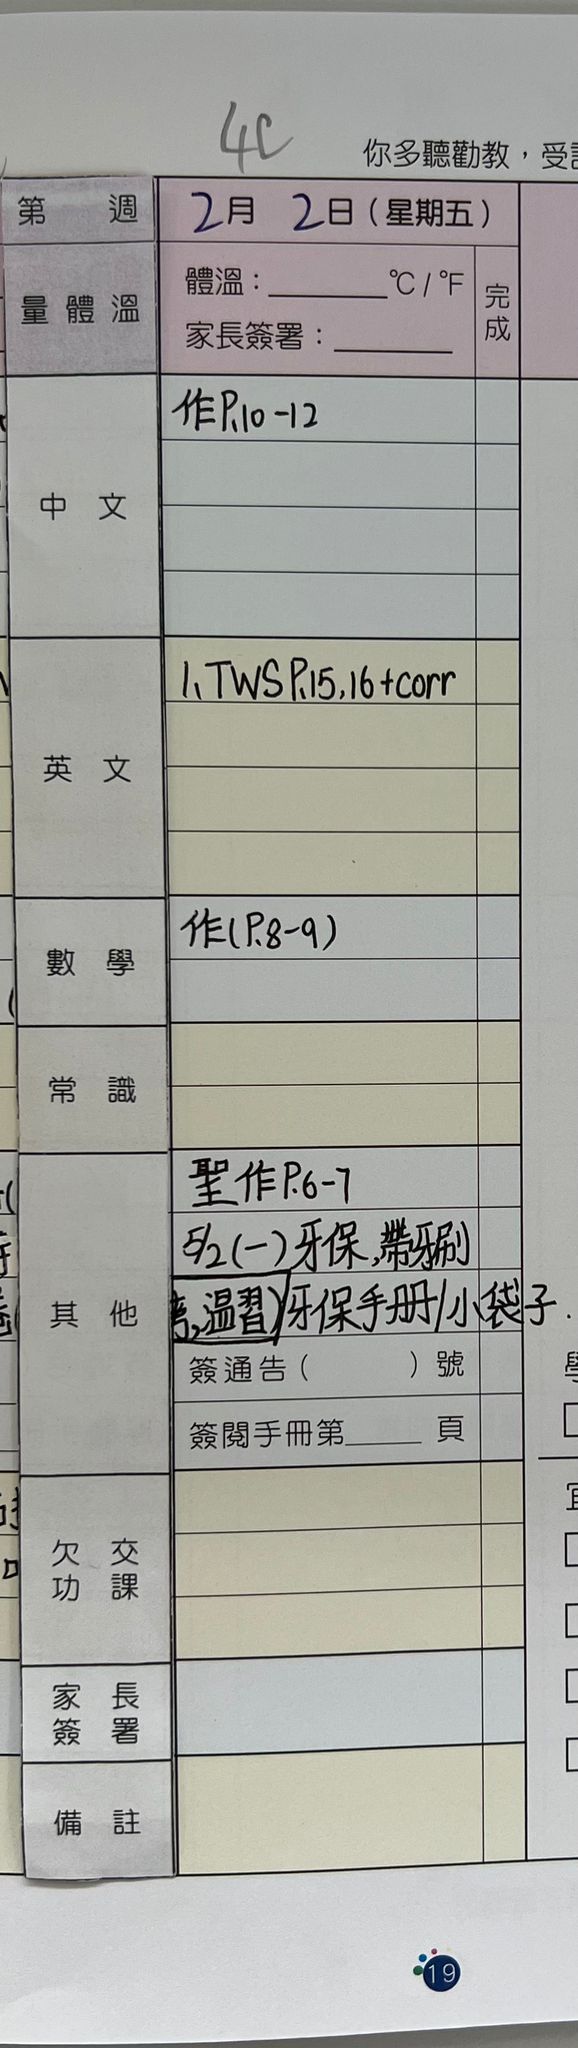 4C
你多聽勸教，受
第 週
2月 2日（星期五）
量體溫
體溫：______°C / °F
家長簽署：______
完成
中文
作P.10-12
英文
1、TWS P.15,16+corr
數學
作(P.8-9)
常識
其他
聖作P.6-7
5/2(一)牙保,帶牙刷
,温習)/牙保手册/小袋子.
簽通告（ ）號
簽閱手冊第____頁
欠交功課
家長簽署
備註
19